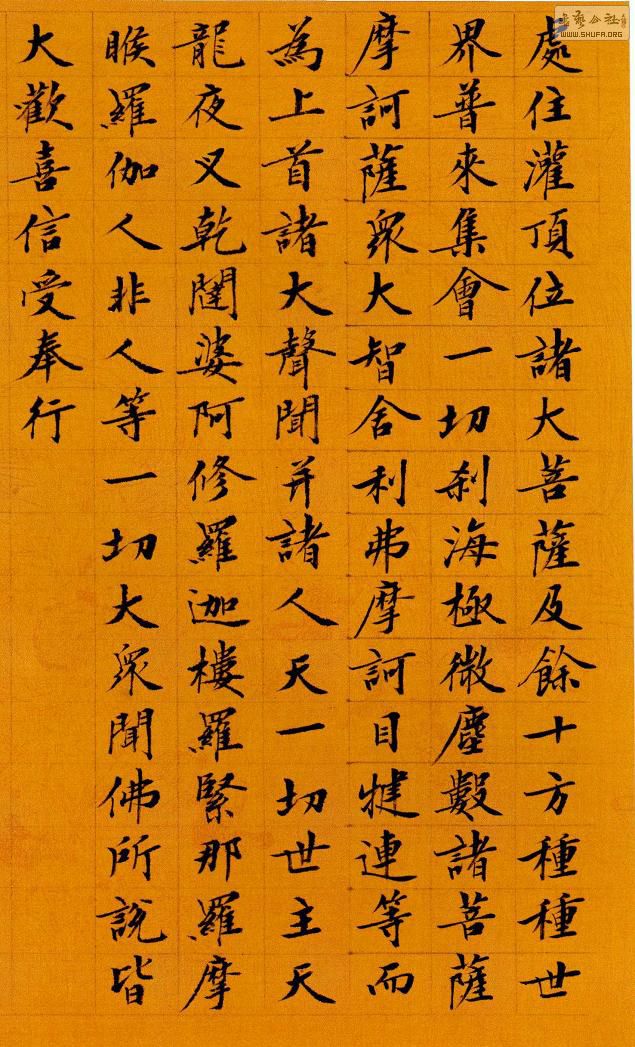 處住灌頂位諸大菩薩及餘十方種種世
界普來集會一切刹海極微塵數諸菩薩
摩訶薩眾大智舍利弗摩訶目犍連等而
為上首諸大聲聞并諸人天一切世主天
龍夜叉乾闥婆阿修羅迦樓羅緊那羅摩
睺羅伽人非人等一切大眾聞佛所說皆
大歡喜信受奉行
書藝公社
WWW.SHUFA.ORG